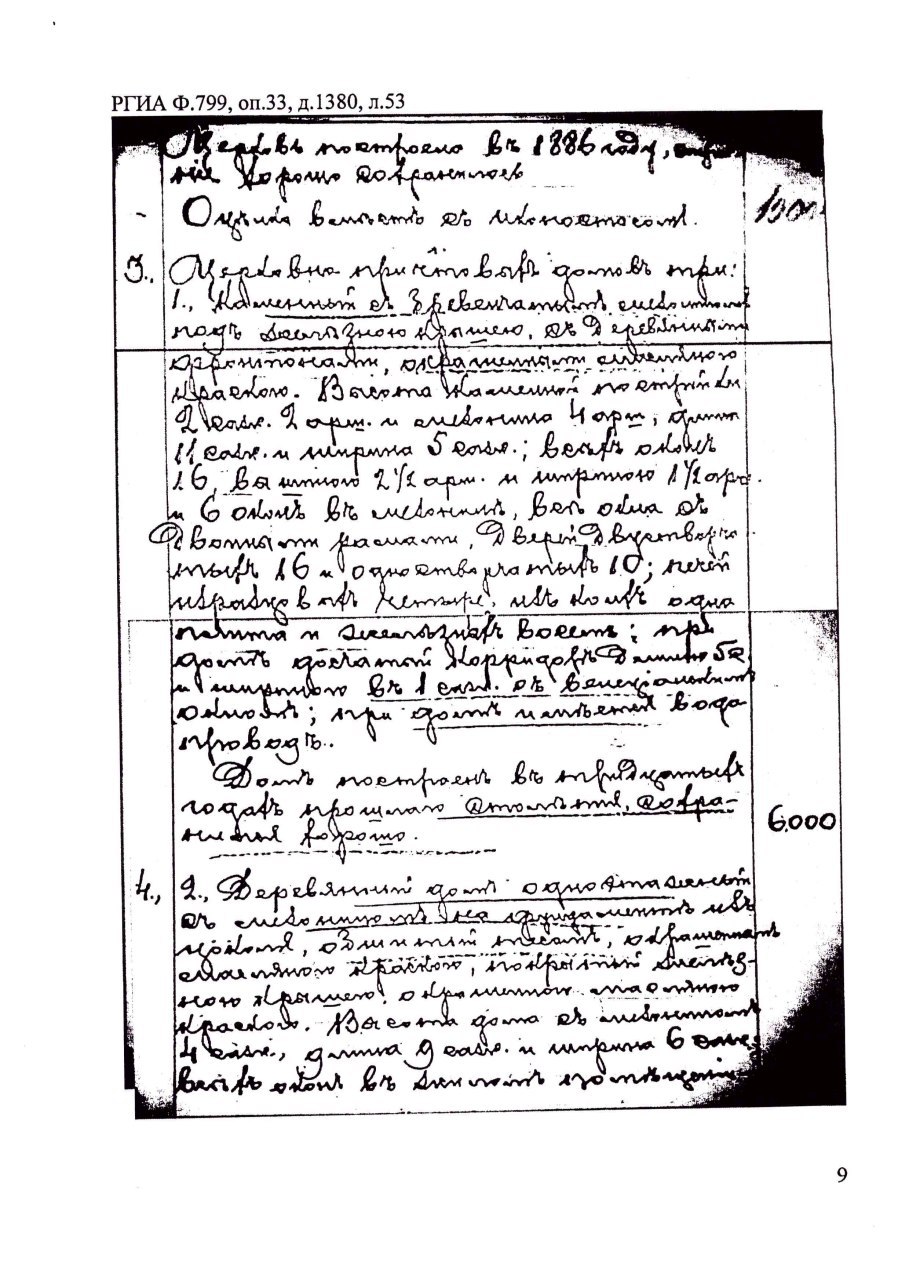 РГИА Ф.799, оп.33, д.1380, л.53
Церковь построена въ 1886 году,
хорошо сохранилась
Оцѣнка вмѣстѣ съ иконостасомъ.
3., Церковно причтовыхъ домовъ три:
1., Каменный съ бревенчатымъ мезониномъ
подъ желѣзною крышею, съ деревянными
фронтонами, окрашенными масляною
краскою. Высота каменной постройки
2 саж. 2 арш. и мезонина 4 арш, длина
11 саж. и ширина 5 саж.; всѣхъ оконъ
16, вышиною 2 1/2 арш. и шириною 1 1/2 арш.
и 6 оконъ въ мезонинѣ, все окна съ
двойными рамами, дверей двустворча
тыхъ 16 и одностворчатыхъ 10; печей
изразцовыхъ четыре, изъ коихъ одна
плита и желѣзныхъ восемь; при
домѣ досчатый корридоръ длиною 5 с
и шириною въ 1 саж. съ венецианскимъ
окномъ; при домѣ имѣется водо
проводъ.
Домъ построенъ въ тридцатыхъ
годахъ прошлаго столѣтія, сохра-
нился хорошо. 6.000
4., 2., Деревянный домъ одноэтажный
съ мезониномъ на фундаментѣ изъ
цоколя, обшитый тесомъ, окрашеннымъ
масляною краскою, покрытый желѣз-
ною крышею, окрашенной масляною
краскою. Высота дома съ мезониномъ
4 саж., длина 9 саж. и ширина 6 саж.
всѣхъ оконъ въ жиломъ помѣщеніи
9